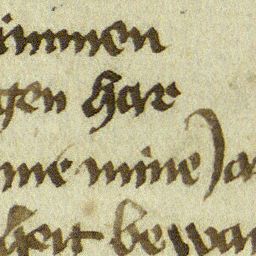 immen
gen har
me mine) a
heit bewar